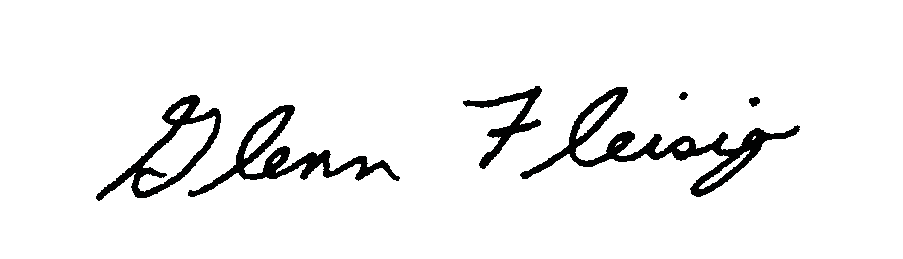 Glenn Fleisig